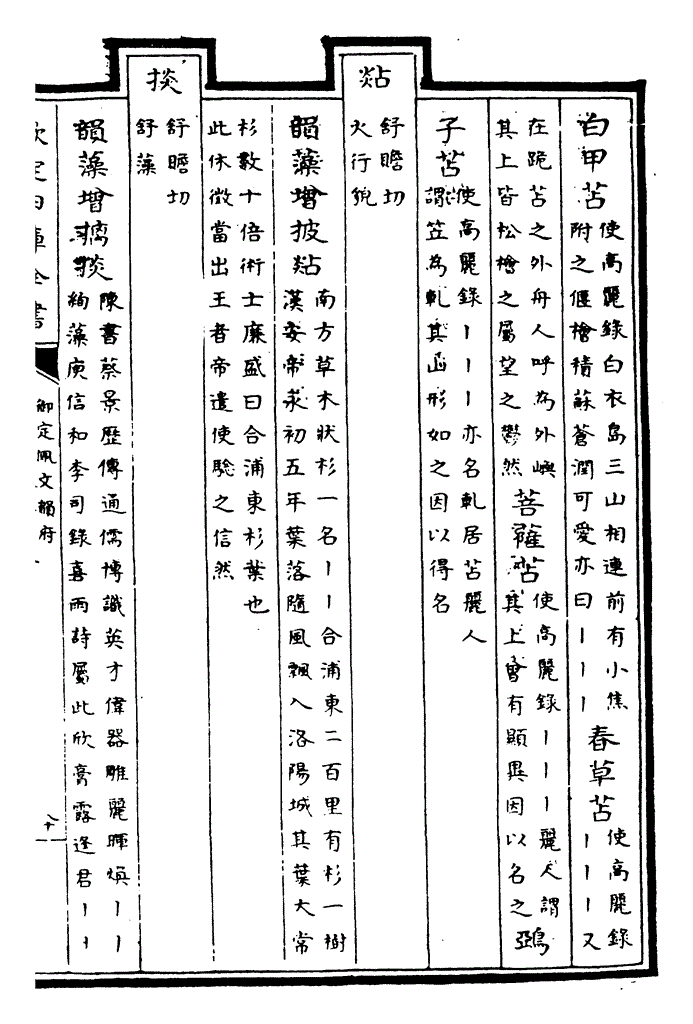 白甲苫使高麗錄白衣島三山相連前有小焦
附之偃檜積蘇蒼潤可愛亦曰丨丨丨
春草苫使高麗錄
丨丨丨又
在跪苫之外舟人呼為外嶼
其上皆松檜之屬望之鬱然
菩薩苫使高麗錄丨丨丨麗人謂
其上曾有顯異因以名之
鵶
子苫使高麗錄丨丨丨亦名軋居苫麗人
謂笠為軋其山形如之因以得名
㷋
舒贍切
火行貌
韻藻增披㷋南方草木狀杉一名丨丨合浦東二百里有杉一樹
漢安帝永初五年葉落隨風飄入洛陽城其葉大常
杉數十倍術士廉盛曰合浦東杉葉也
此休徵當出王者帝遣使驗之信然
掞
舒贍切
舒藻
韻藻增摛掞陳書蔡景歷傳通儒博識英才偉器雕麗暉煥丨丨
絢藻庾信和李司錄喜雨詩屬此欣膏露逢君丨丨
欽定四庫全書
御定佩文韻府